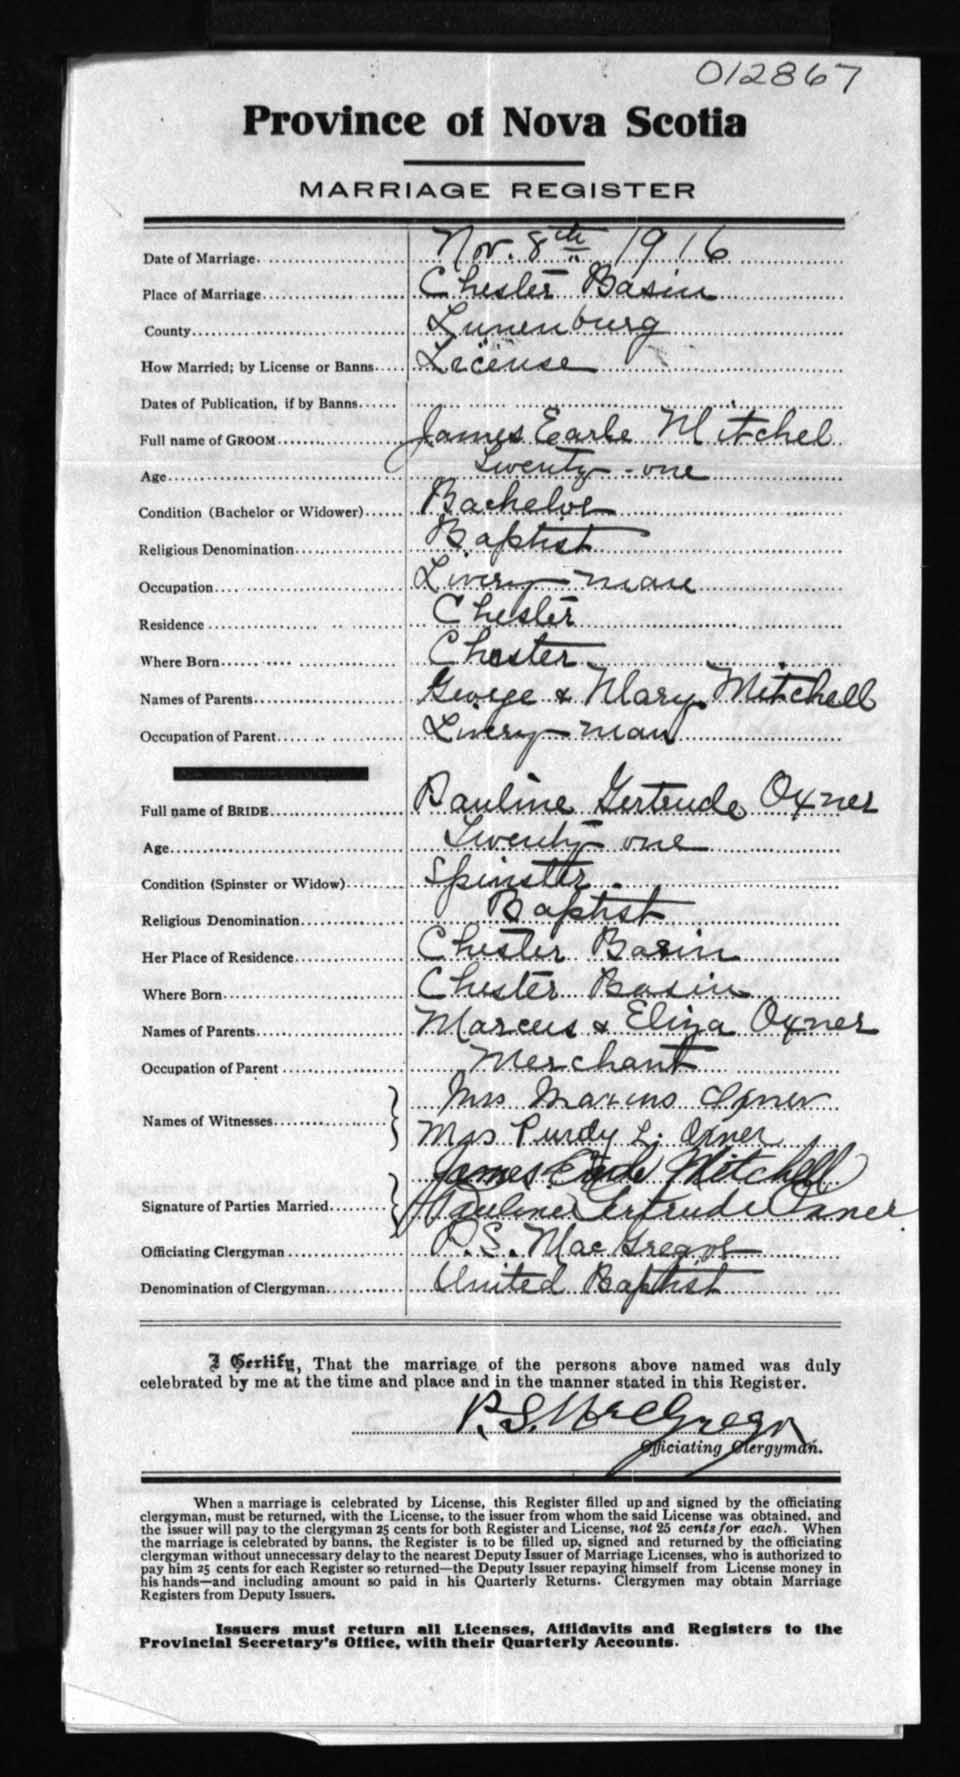 012867
Province of Nova Scotia
MARRIAGE REGISTER
Date of Marriage Nov. 8th 1916
Place of Marriage Chester Basin
County Lunenburg
How Married; by License or Banns License
Dates of Publication, if by Banns
Full name of GROOM James Earle Mitchel
Age Twenty-one
Condition (Bachelor or Widower) Bachelor
Religious Denomination Baptist
Occupation Livery-man
Residence Chester
Where Born Chester
Names of Parents George & Mary Mitchell
Occupation of Parent Livery-man
Full name of BRIDE Pauline Gertrude Oxner
Age Twenty-one
Condition (Spinster or Widow) Spinster.
Religious Denomination Baptist
Her Place of Residence Chester Basin
Where Born Chester Basin
Names of Parents Marcus & Eliza Oxner
Occupation of Parent Merchant
Names of Witnesses Mrs Marcus Oxner
Mrs Purdy L. Oxner
James Earle Mitchell
Signature of Parties Married Pauline Gertrude Oxner.
Officiating Clergyman P.S. MacGregor
Denomination of Clergyman United Baptist
I Certify, That the marriage of the persons above named was duly
celebrated by me at the time and place and in the manner stated in this Register.
P.S. MacGregor
Officiating Clergyman.
When a marriage is celebrated by License, this Register filled up and signed by the officiating
clergyman, must be returned, with the License, to the issuer from whom the said License was obtained, and
the issuer will pay to the clergyman 25 cents for both Register and License, not 25 cents for each. When
the marriage is celebrated by banns, the Register is to be filled up, signed and returned by the officiating
clergyman without unnecessary delay to the nearest Deputy Issuer of Marriage Licenses, who is authorized to
pay him 25 cents for each Register so returned—the Deputy Issuer repaying himself from License money in
his hands—and including amount so paid in his Quarterly Returns. Clergymen may obtain Marriage
Registers from Deputy Issuers.
Issuers must return all Licenses, Affidavits and Registers to the
Provincial Secretary's Office, with their Quarterly Accounts.